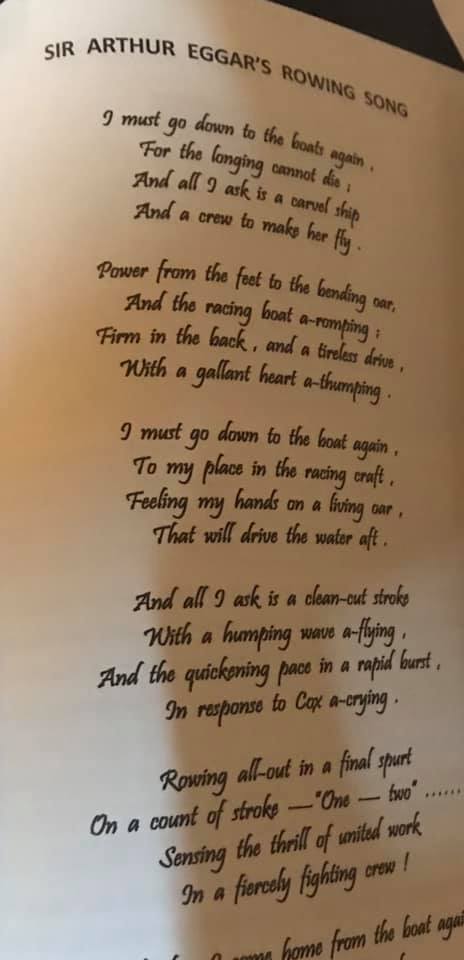 SIR ARTHUR EGGAR'S ROWING SONG
I must go down to the boats again,
For the longing cannot die;
And all I ask is a carvel ship
And a crew to make her fly.
Power from the feet to the bending oar,
And the racing boat a-romping;
Firm in the back, and a tireless drive,
With a gallant heart a-thumping.
I must go down to the boat again,
To my place in the racing craft,
Feeling my hands on a living oar,
That will drive the water aft.
And all I ask is a clean-cut stroke
With a humping wave a-flying,
And the quickening pace in a rapid burst,
In response to Cox a-crying.
Rowing all-out in a final spurt
On a count of stroke — "One — two" ......
Sensing the thrill of united work
In a fiercely fighting crew!
home from the boat